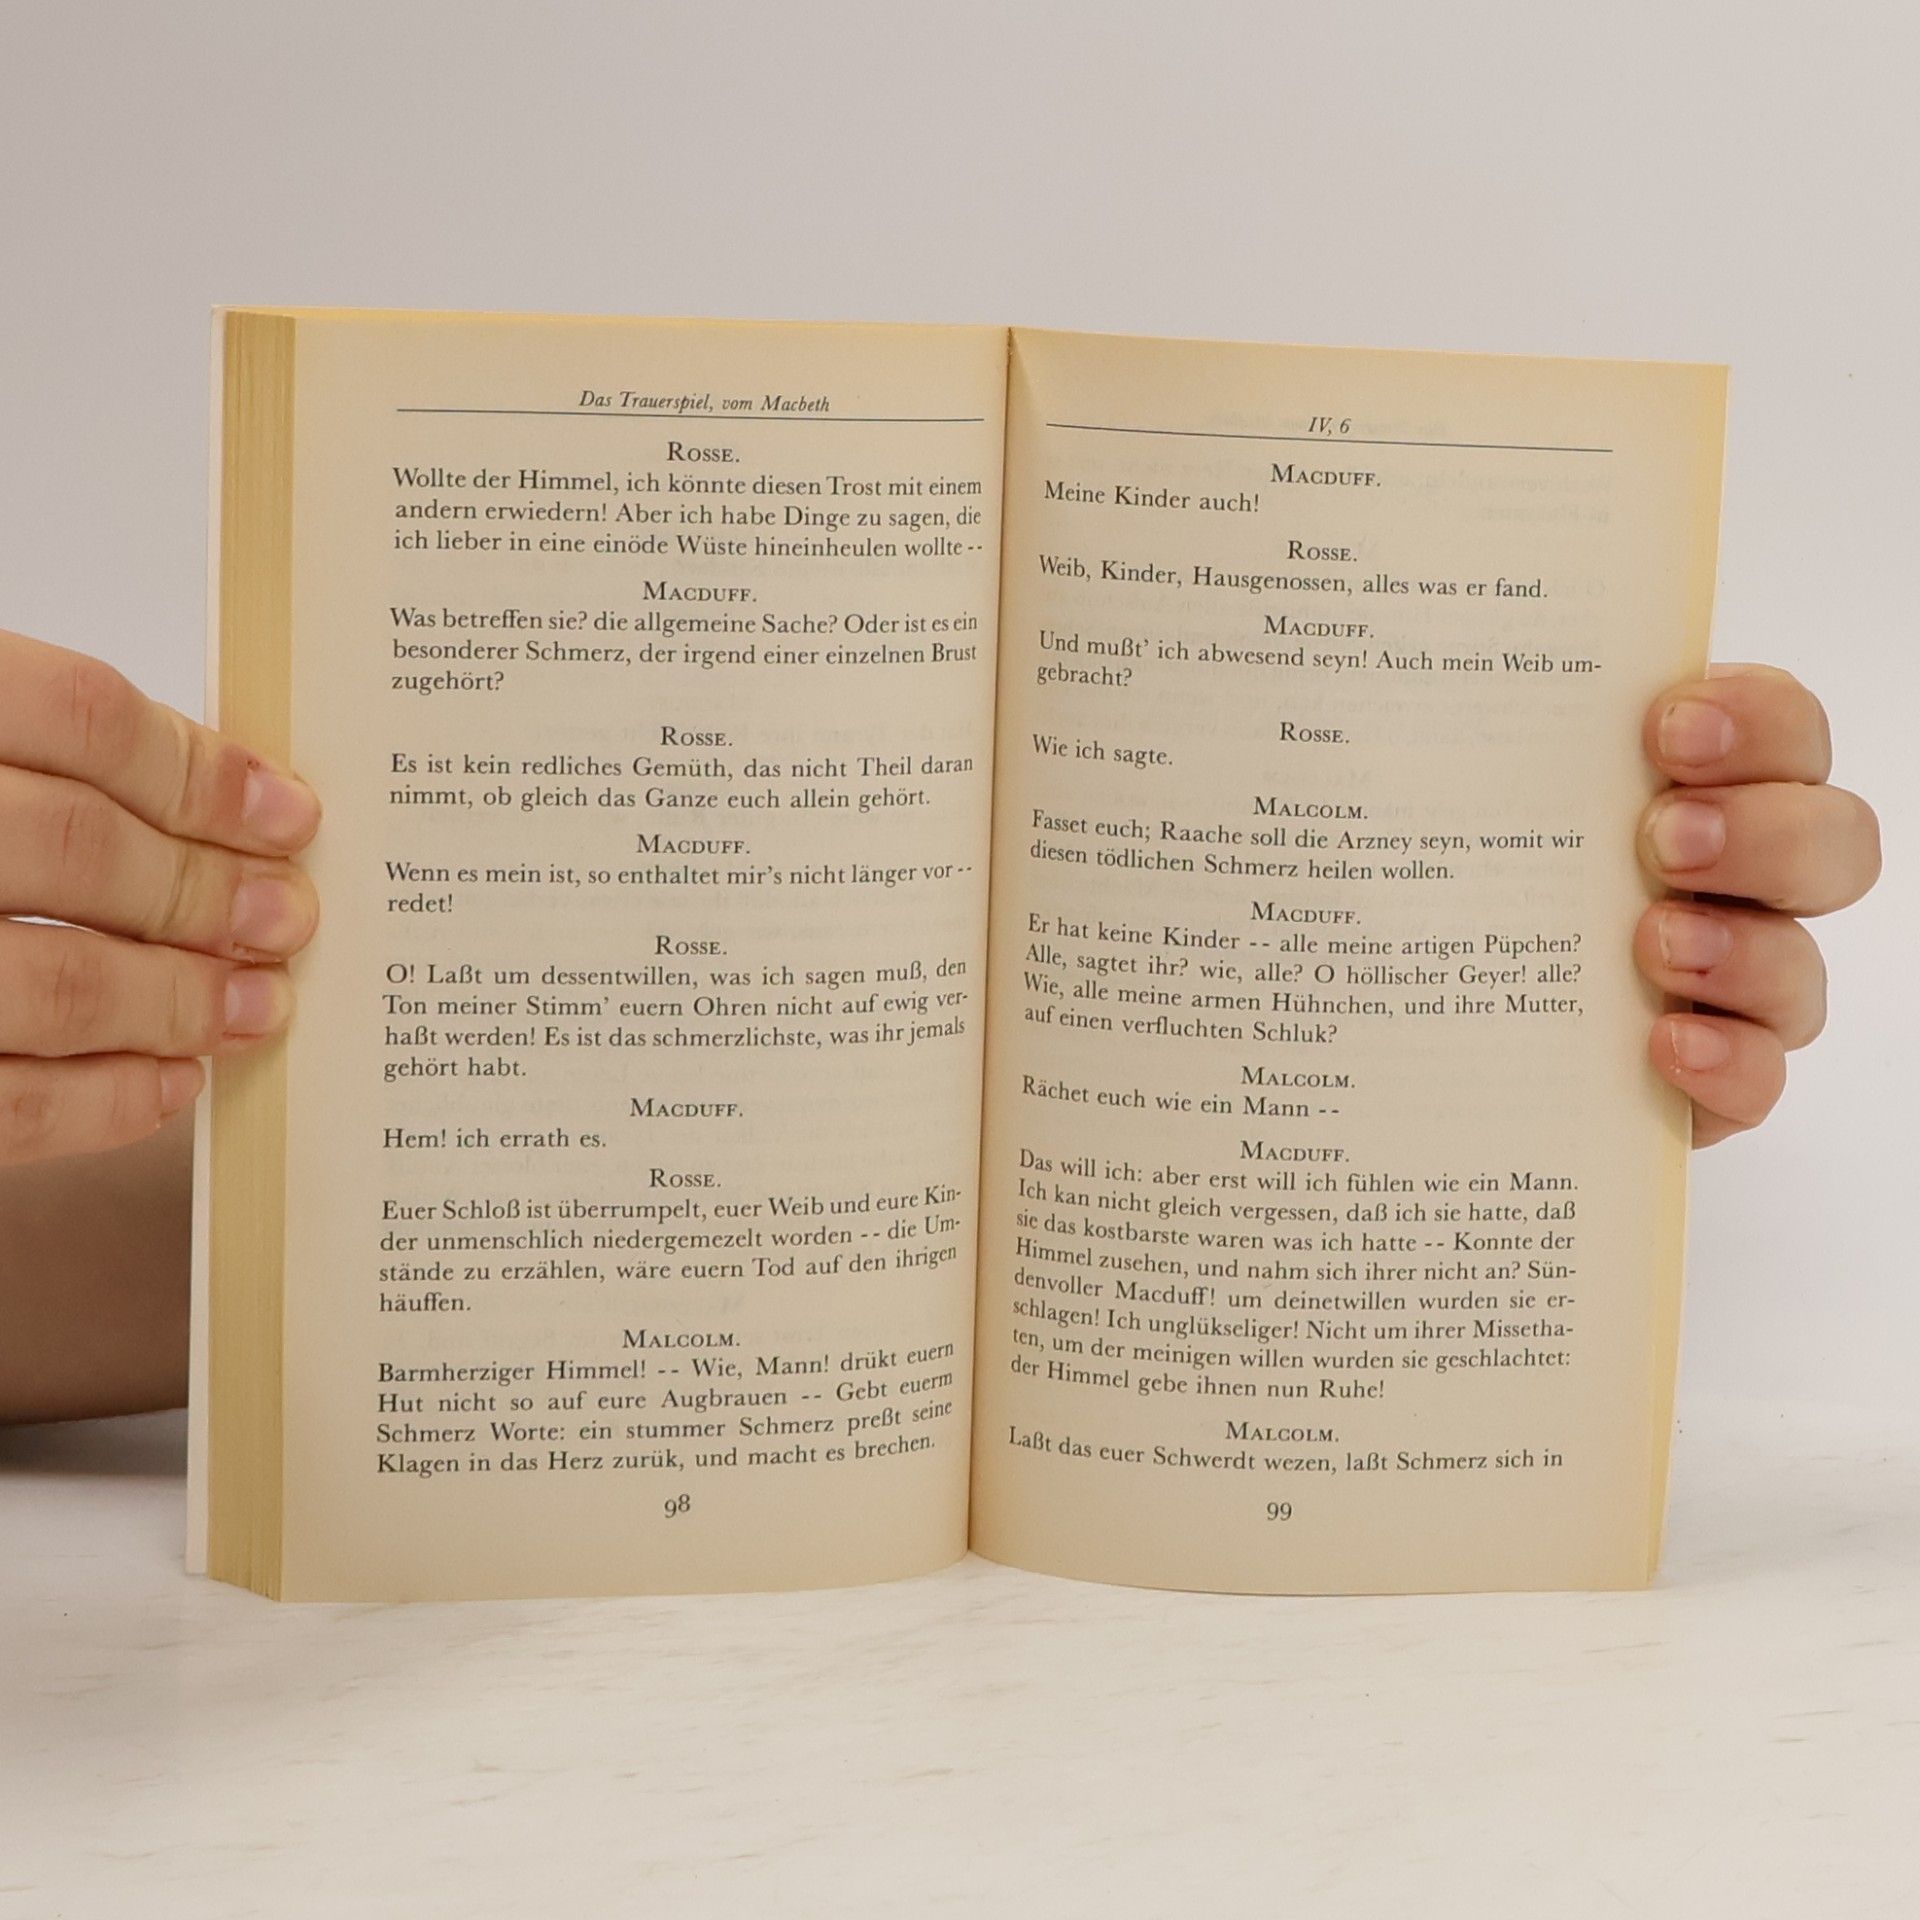 Das Trauerspiel, vom Macbeth
ROSSE.
Wollte der Himmel, ich könnte diesen Trost mit einem
andern erwiedern! Aber ich habe Dinge zu sagen, die
ich lieber in eine einöde Wüste hineinheulen wollte --
MACDUFF.
Was betreffen sie? die allgemeine Sache? Oder ist es ein
besonderer Schmerz, der irgend einer einzelnen Brust
zugehört?
ROSSE.
Es ist kein redliches Gemüth, das nicht Theil daran
nimmt, ob gleich das Ganze euch allein gehört.
MACDUFF.
Wenn es mein ist, so enthaltet mir's nicht länger vor --
redet!
ROSSE.
O! Laßt um dessentwillen, was ich sagen muß, den
Ton meiner Stimm' euern Ohren nicht auf ewig ver-
haßt werden! Es ist das schmerzlichste, was ihr jemals
gehört habt.
MACDUFF.
Hem! ich errath es.
ROSSE.
Euer Schloß ist überrumpelt, euer Weib und eure Kin-
der unmenschlich niedergemezelt worden -- die Um-
stände zu erzählen, wäre euern Tod auf den ihrigen
häuffen.
MALCOLM.
Barmherziger Himmel! -- Wie, Mann! drükt euern
Hut nicht so auf eure Augbrauen -- Gebt euerm
Schmerz Worte: ein stummer Schmerz preßt seine
Klagen in das Herz zurük, und macht es brechen.
98
IV, 6
MACDUFF.
Meine Kinder auch!
ROSSE.
Weib, Kinder, Hausgenossen, alles was er fand.
MACDUFF.
Und mußt' ich abwesend seyn! Auch mein Weib um-
gebracht?
ROSSE.
Wie ich sagte.
MALCOLM.
Fasset euch; Raache soll die Arzney seyn, womit wir
diesen tödlichen Schmerz heilen wollen.
MACDUFF.
Er hat keine Kinder -- alle meine artigen Püpchen?
Alle, sagtet ihr? wie, alle? O höllischer Geyer! alle?
Wie, alle meine armen Hühnchen, und ihre Mutter,
auf einen verfluchten Schluk?
MALCOLM.
Rächet euch wie ein Mann --
MACDUFF.
Das will ich: aber erst will ich fühlen wie ein Mann.
Ich kan nicht gleich vergessen, daß ich sie hatte, daß
sie das kostbarste waren was ich hatte -- Konnte der
Himmel zusehen, und nahm sich ihrer nicht an? Sün-
denvoller Macduff! um deinetwillen wurden sie er-
schlagen! Ich unglükseliger! Nicht um ihrer Missetha-
ten, um der meinigen willen wurden sie geschlachtet:
der Himmel gebe ihnen nun Ruhe!
MALCOLM.
Laßt das euer Schwerdt wezen, laßt Schmerz sich in
99